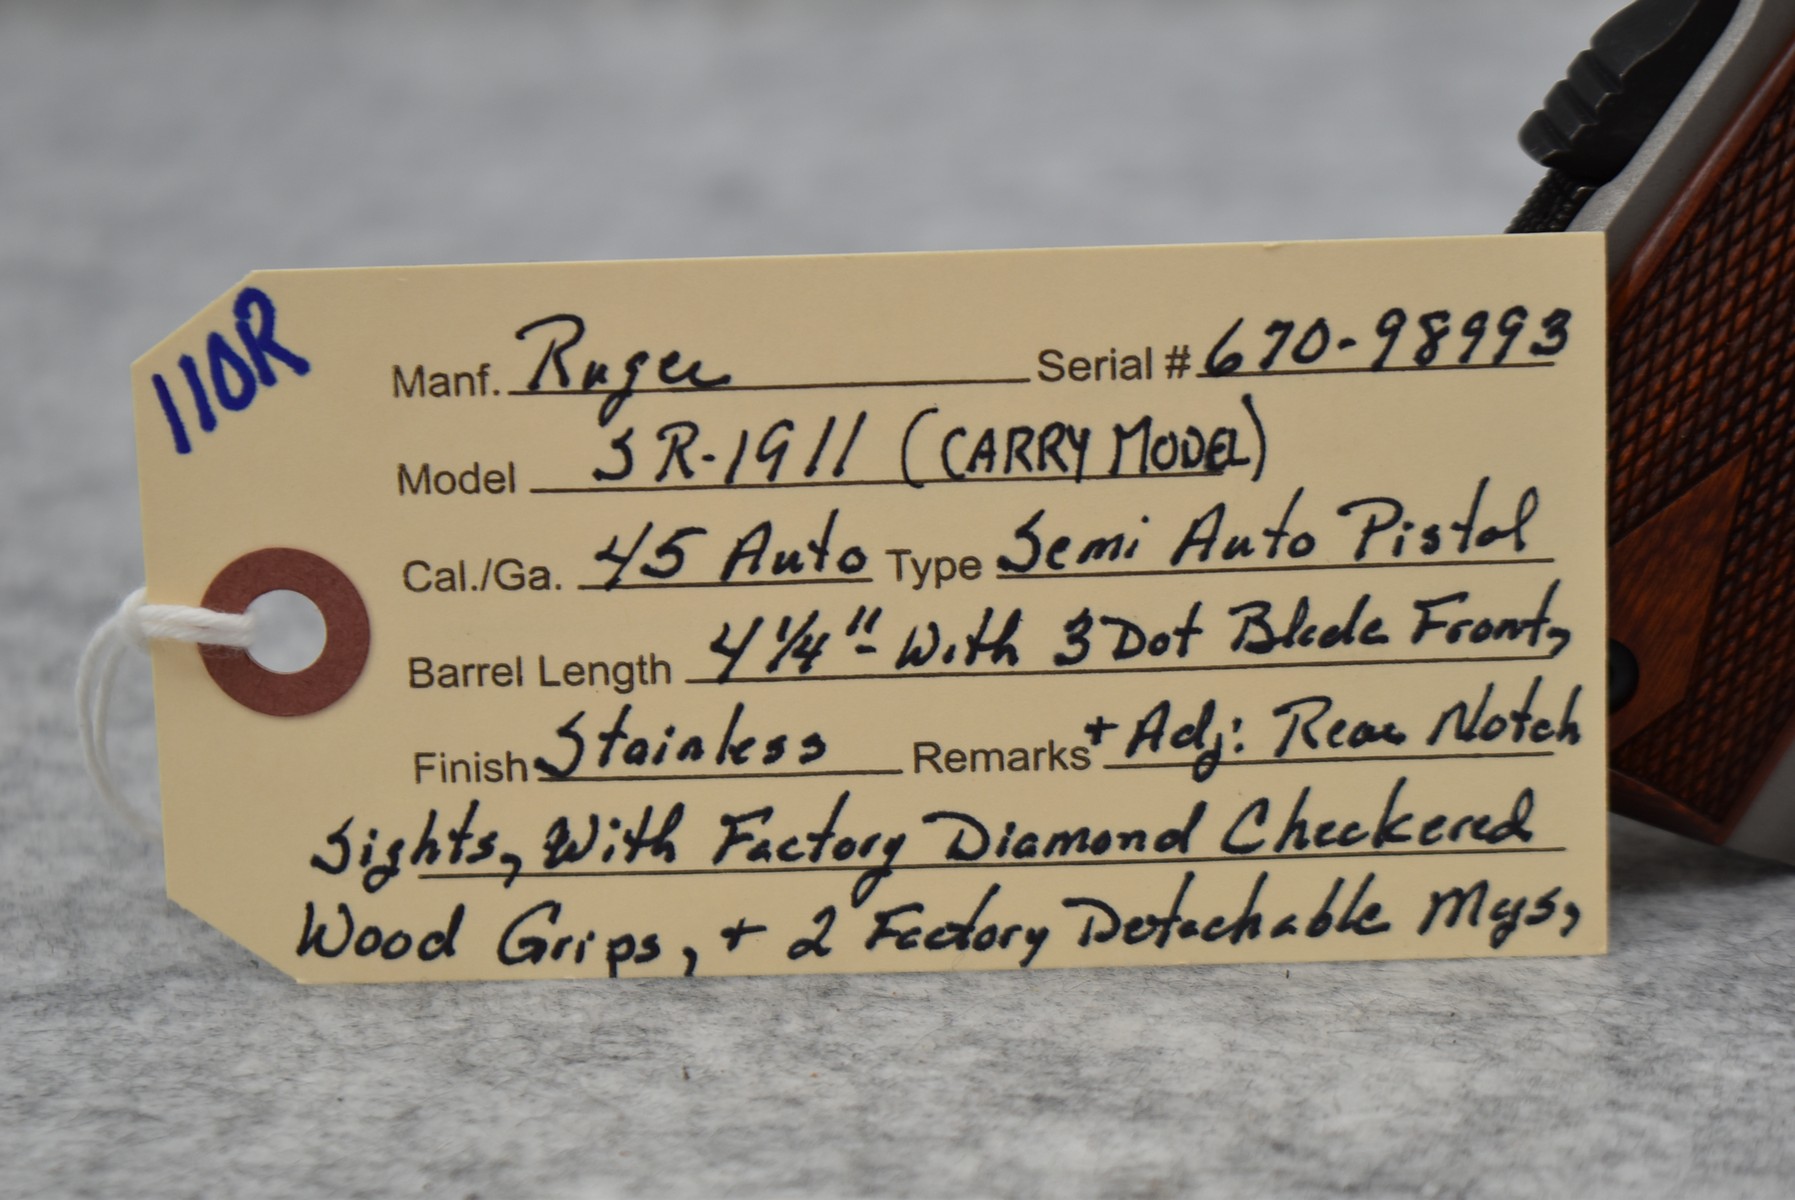 110R
Manf. Ruger Serial # 670-98993
Model SR-1911 (CARRY MODEL)
Cal./Ga. 45 Auto Type Semi Auto Pistol
Barrel Length 4 1/4" - With 3 Dot Blade Front,
Finish Stainless Remarks + Adj: Rear Notch
Sights, With Factory Diamond Checkered
Wood Grips, + 2 Factory Detachable Mgs,